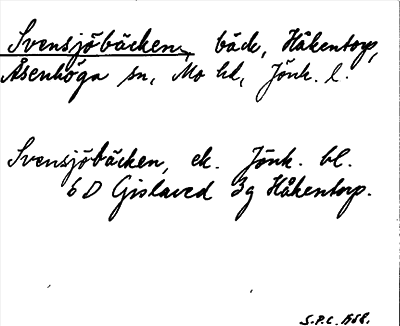 Svensjöbäcken, bäck, Håkentorp,
Åsenhöga sn, Mo hd, Jönk. l.
Svensjöbäcken, ek. Jönk. bl.
6 D Gislaved 3g Håkentorp.
S.P.C. 1968.